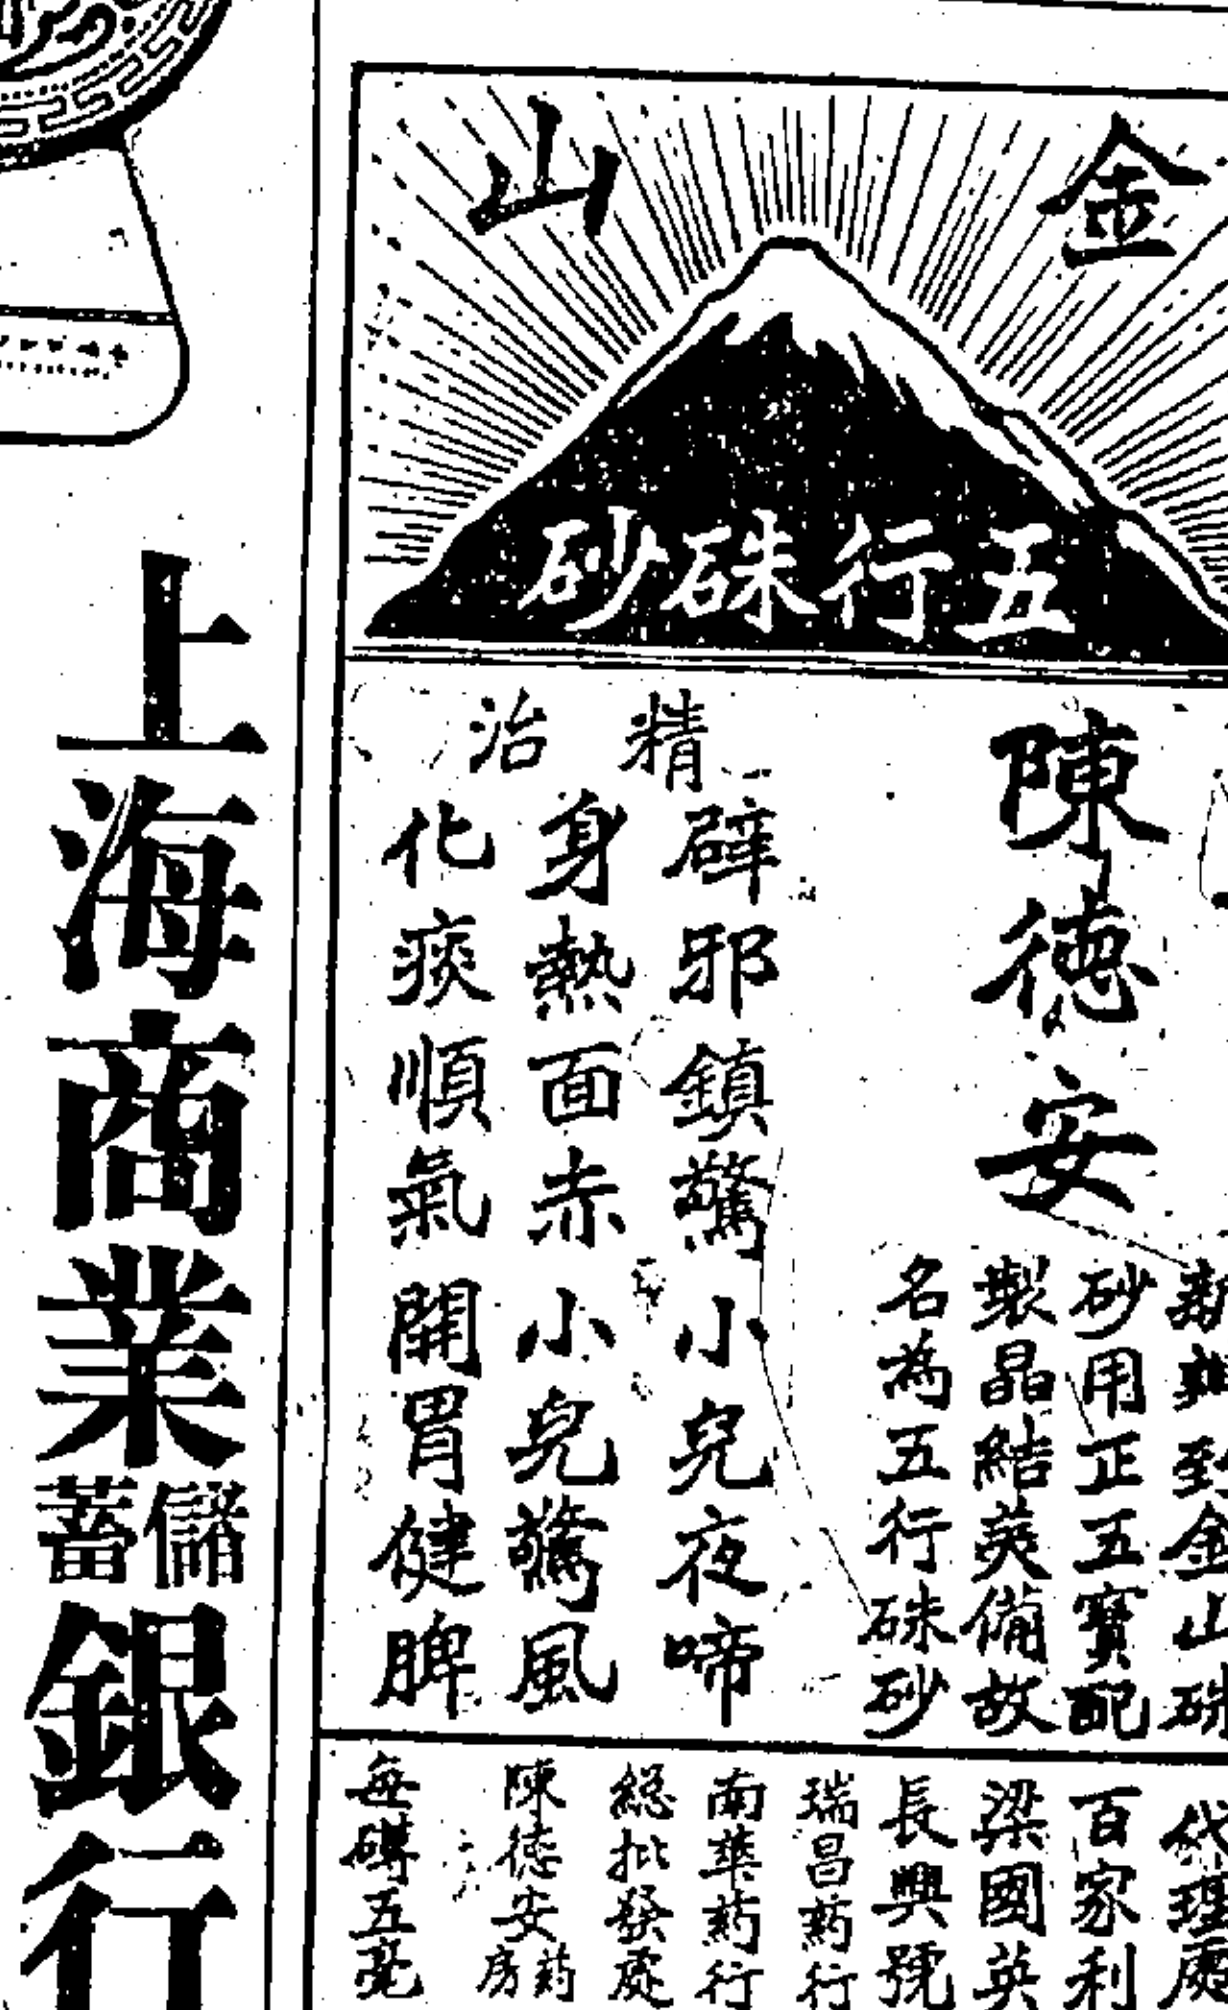 金山
五行硃砂
陳德安
新到金山硃
砂用正五寶配
製晶結美備故
名為五行硃砂
精治
辟邪鎮驚小兒夜啼
身熱面赤小兒驚風
化痰順氣開胃健脾
代理處
百家利
梁國英
長興號
瑞昌葯行
南華葯行
總批發處
陳德安葯房
每磚五毫
上海商業儲蓄銀行